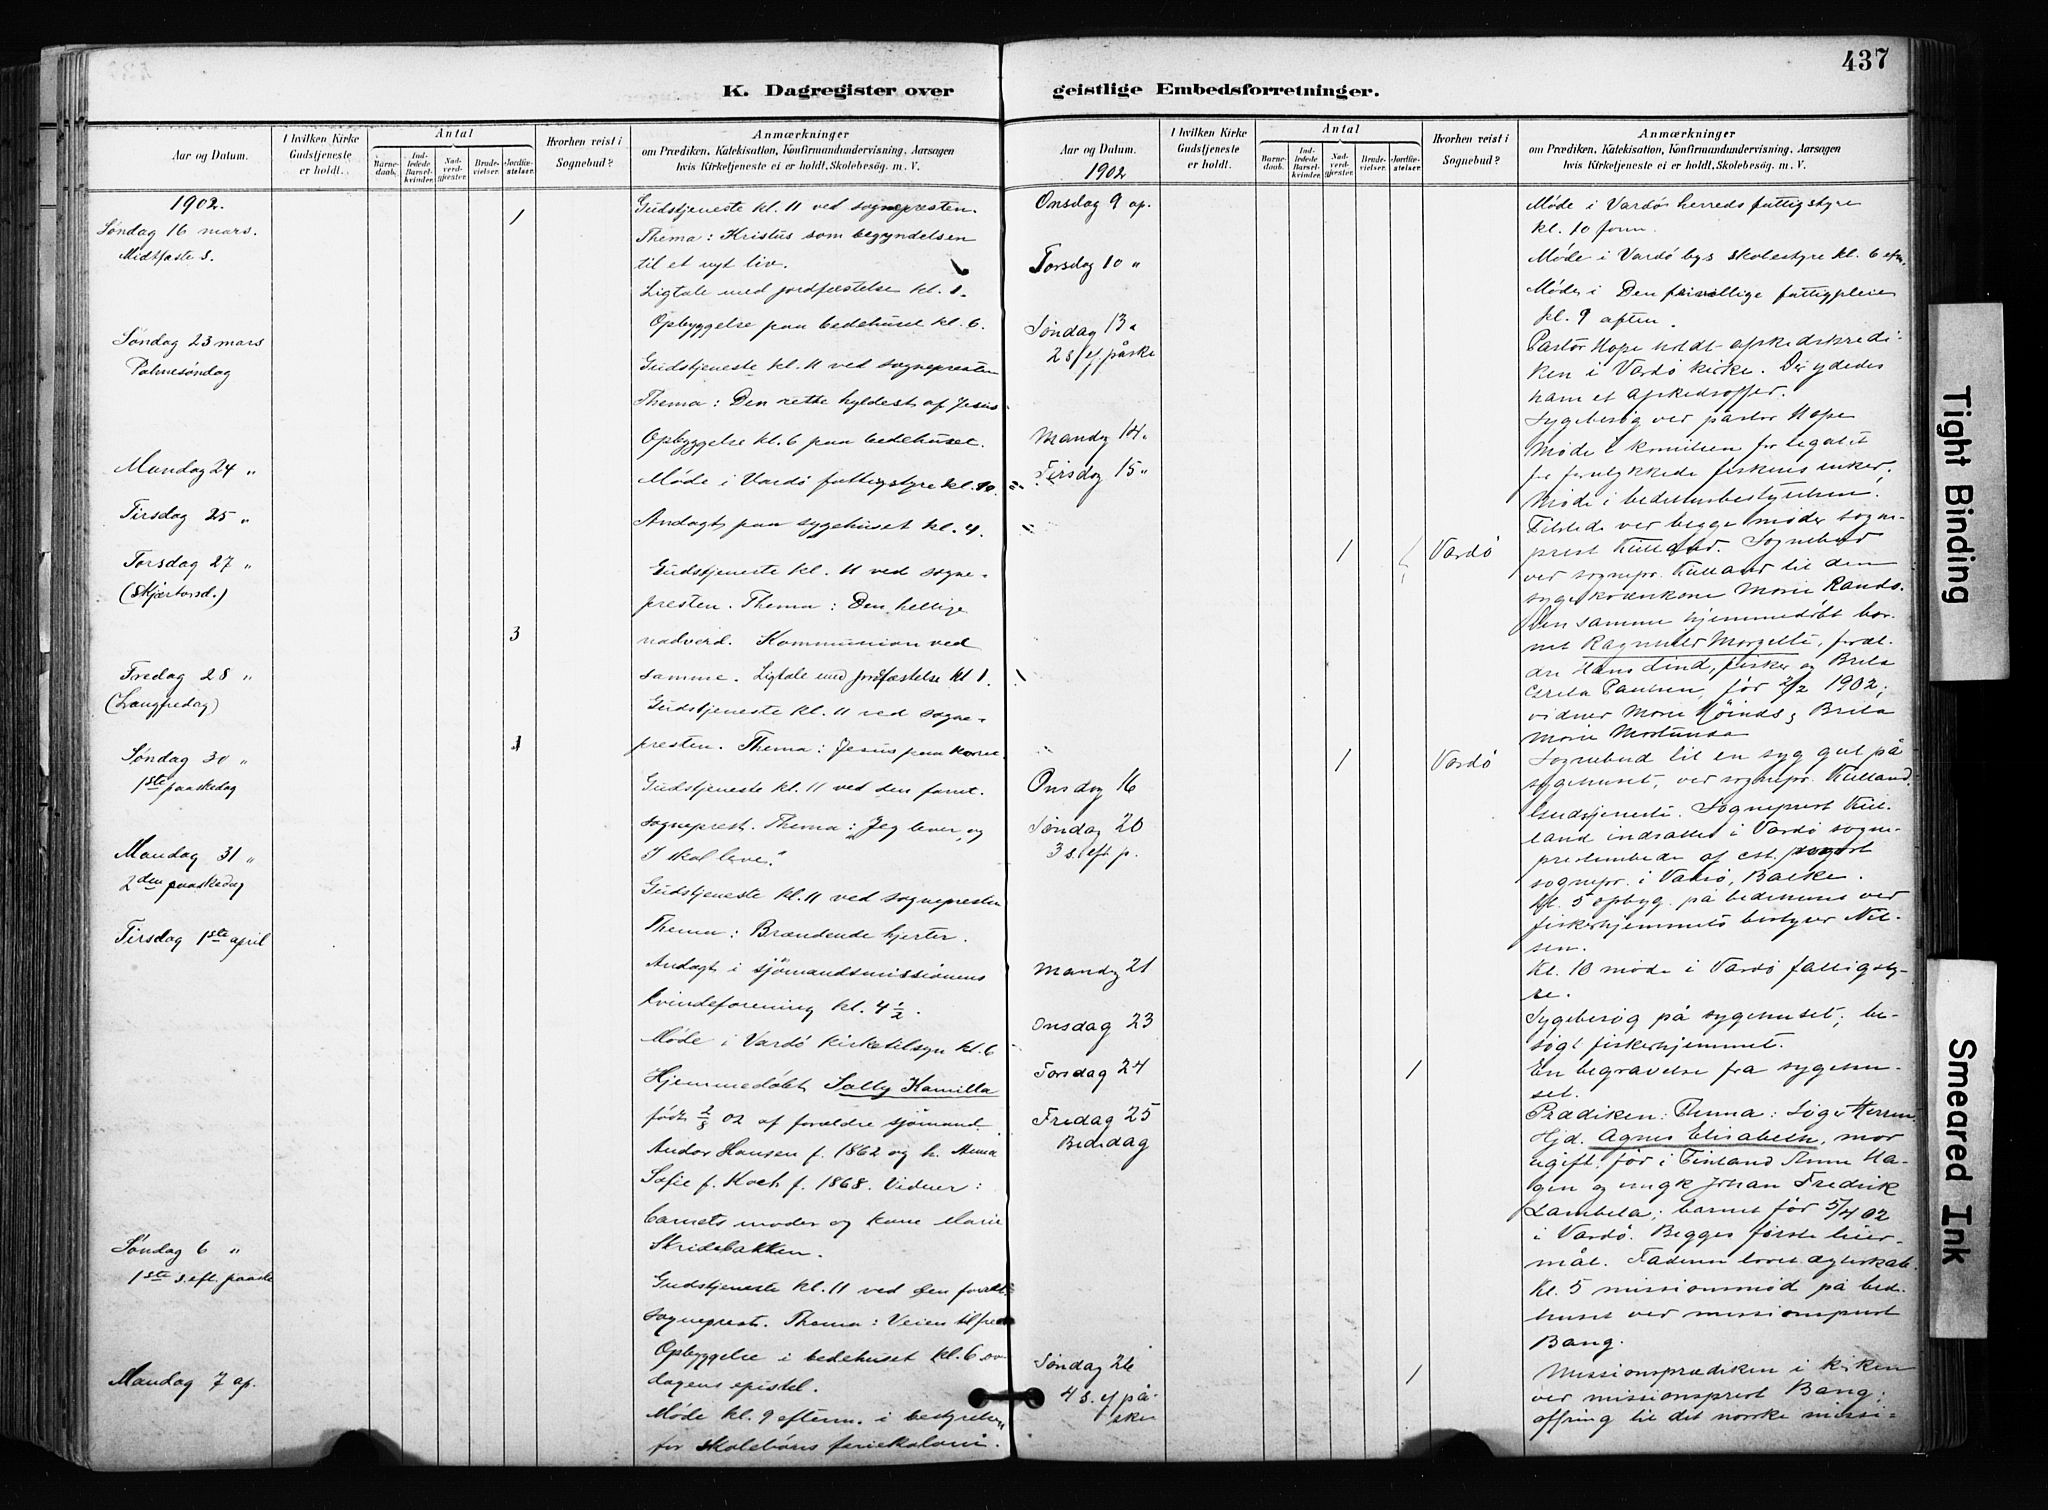 437
K. Dagregister over geistlige Embedsforretninger.
Aar og Datum.
I hvilken Kirke Gudstjeneste er holdt.
Antal
Barnedaab.
Indledede Barselkvinder.
Nadverdgjester.
Brudevielser.
Jordfæstelser.
Hvorhen reist i Sognebud?
Anmærkninger
om Prædiken, Katekisation, Konfirmandundervisning. Aarsagen
hvis Kirketjeneste ei er holdt. Skolebesøg. m. V.
1902.
Søndag 16 mars.
Midtfaste s.
1
Gudstjeneste kl. 11 ved sognepresten.
Thema: Kristus som begyndelsen
til et nyt liv.
Ligtale med jordfæstelse kl. 1.
Opbyggelse paa bedehuset kl. 6.
Søndag 23 mars
Palmesøndag
Gudstjeneste kl. 11 ved sognepresten
Thema: Den rette hyldest af Jesus
Opbyggelse kl. 6 paa bedehuset.
Mandag 24 "
Møde i Vardø fattigstyre kl. 10.
Tirsdag 25 "
Andagt paa sygehuset kl. 4.
Torsdag 27 "
(Skjærtorsd.)
Gudstjeneste kl. 11 ved sogne-
presten. Thema: Den hellige
3
nadverd. Kommunion ved
samme. Ligtale med jordfæstelse kl 1.
Fredag 28 "
(Langfredag)
Gudstjeneste kl. 11 ved sogne-
presten. Thema: Jesus paa korset
Søndag 30 "
1ste paaskedag
1
Gudstjeneste kl. 11 ved den forret.
sogneprest. Thema: Jeg lever, og
I skal leve."
Mandag 31 "
2den paaskedag
Gudstjeneste kl. 11 ved sognepresten
Thema: Brændende hjerter.
Tirsdag 1ste april
Andagt i sjømandsmissionens
kvindeforening kl. 4 1/2.
Møde i Vardø kirketilsyn kl. 6
Hjemmedøbt Sally Kamilla
født 2/3 02 af forældre sjømand
Andor Hansen f. 1862 og h. Anna
Sofie f. Koch f. 1868. Vidner:
barnets moder og kone Marie
Skridebakken.
Søndag 6 "
1ste s. eft. paaske
Gudstjeneste kl. 11 ved den forrett.
sogneprest. Thema: Veien til fred
Opbyggelse i bedehuset kl. 6 ov
dagens epistel.
Mandag 7 ap.
Møde kl. 9 efterm. i bestyrelsen
for skolebørns feriekoloni.
Aar og Datum.
1902
I hvilken Kirke Gudstjeneste er holdt.
Antal
Barnedaab.
Indledede Barselkvinder.
Nadverdgjester.
Brudevielser.
Jordfæstelser.
Hvorhen reist i Sognebud?
Anmærkninger
om Prædiken, Katekisation, Konfirmandundervisning. Aarsagen
hvis Kirketjeneste ei er holdt. Skolebesøg. m. V.
Onsdag 9 ap.
Møde i Vardø herreds fattigstyre
kl. 10 form.
Torsdag 10 "
Møde i Vardø bys skolestyre kl. 6 efm.
Møde i Den frivillige fattigpleie
kl. 9 aften.
Søndag 13 "
2 s. ef. påske
Pastor Hope holdt afskedspredi-
ken i Vardø kirke. Der ydedes
ham et afskedsoffer.
Mandg 14.
Sygebesøg ved pastor Hope
Tirsdag 15 "
Møde i komiteen for legatet
for forulykkede fiskeres enker,
Møde i bedehusbestyrelsen.
Tilstede ved begge møder sogne-
1
Vardø
prest Kielland. Sognebud
ved sognepr. Kielland til den
syge kone Marie Rands.
Den samme hjemmedøbt bar-
net Ragnhild Margethe, foræl-
dre Hans Lind, fisker og Brita
Greta Paulsen, før 2/2 1902,
vidner Marie Høinds, Brita
Marie Mortensen
Onsdag 16
1
Vardø
Sognebud til en syg gut på
sygehuset, ved sognepr. Kielland.
Søndag 20
3 s. eft. p.
Gudstjeneste. Sogneprest Kiel-
land indsattes i Vardø sogne-
prestembede af cst.
sognepr. i Vadsø, Balke.
Kl. 5 opbyg. på bedehuset ved
fiskerhjemmets bestyrer Niel-
sen.
Mandg 21
Kl. 10 møde i Vardø fattigsty-
re.
Onsdag 23
Sygebesøg på sygehuset, be-
søgt fiskerhjemmet.
Torsdag 24
1
En begravelse fra sygehu-
set.
Fredag 25
Bededag
Prædiken: Thema: Søg Herren
Hjd. Agnes Elisabeth, mor
ugift før i Finland Anna Ha-
gen og ungk Johan Fredrik
Lambela; barnet før 5/4 02
i Vardø. Begges første leier-
mål. Faderen lovet ægteskab.
Kl. 5 missionsmød på bed-
huset ved missionsprest
Bang.
Søndag 26
4 s. ef på-
ske
1
Missionsprædiken i kirken
ved missionsprest Bang;
ofring til det norske missi-
Tight Binding
Smeared Ink